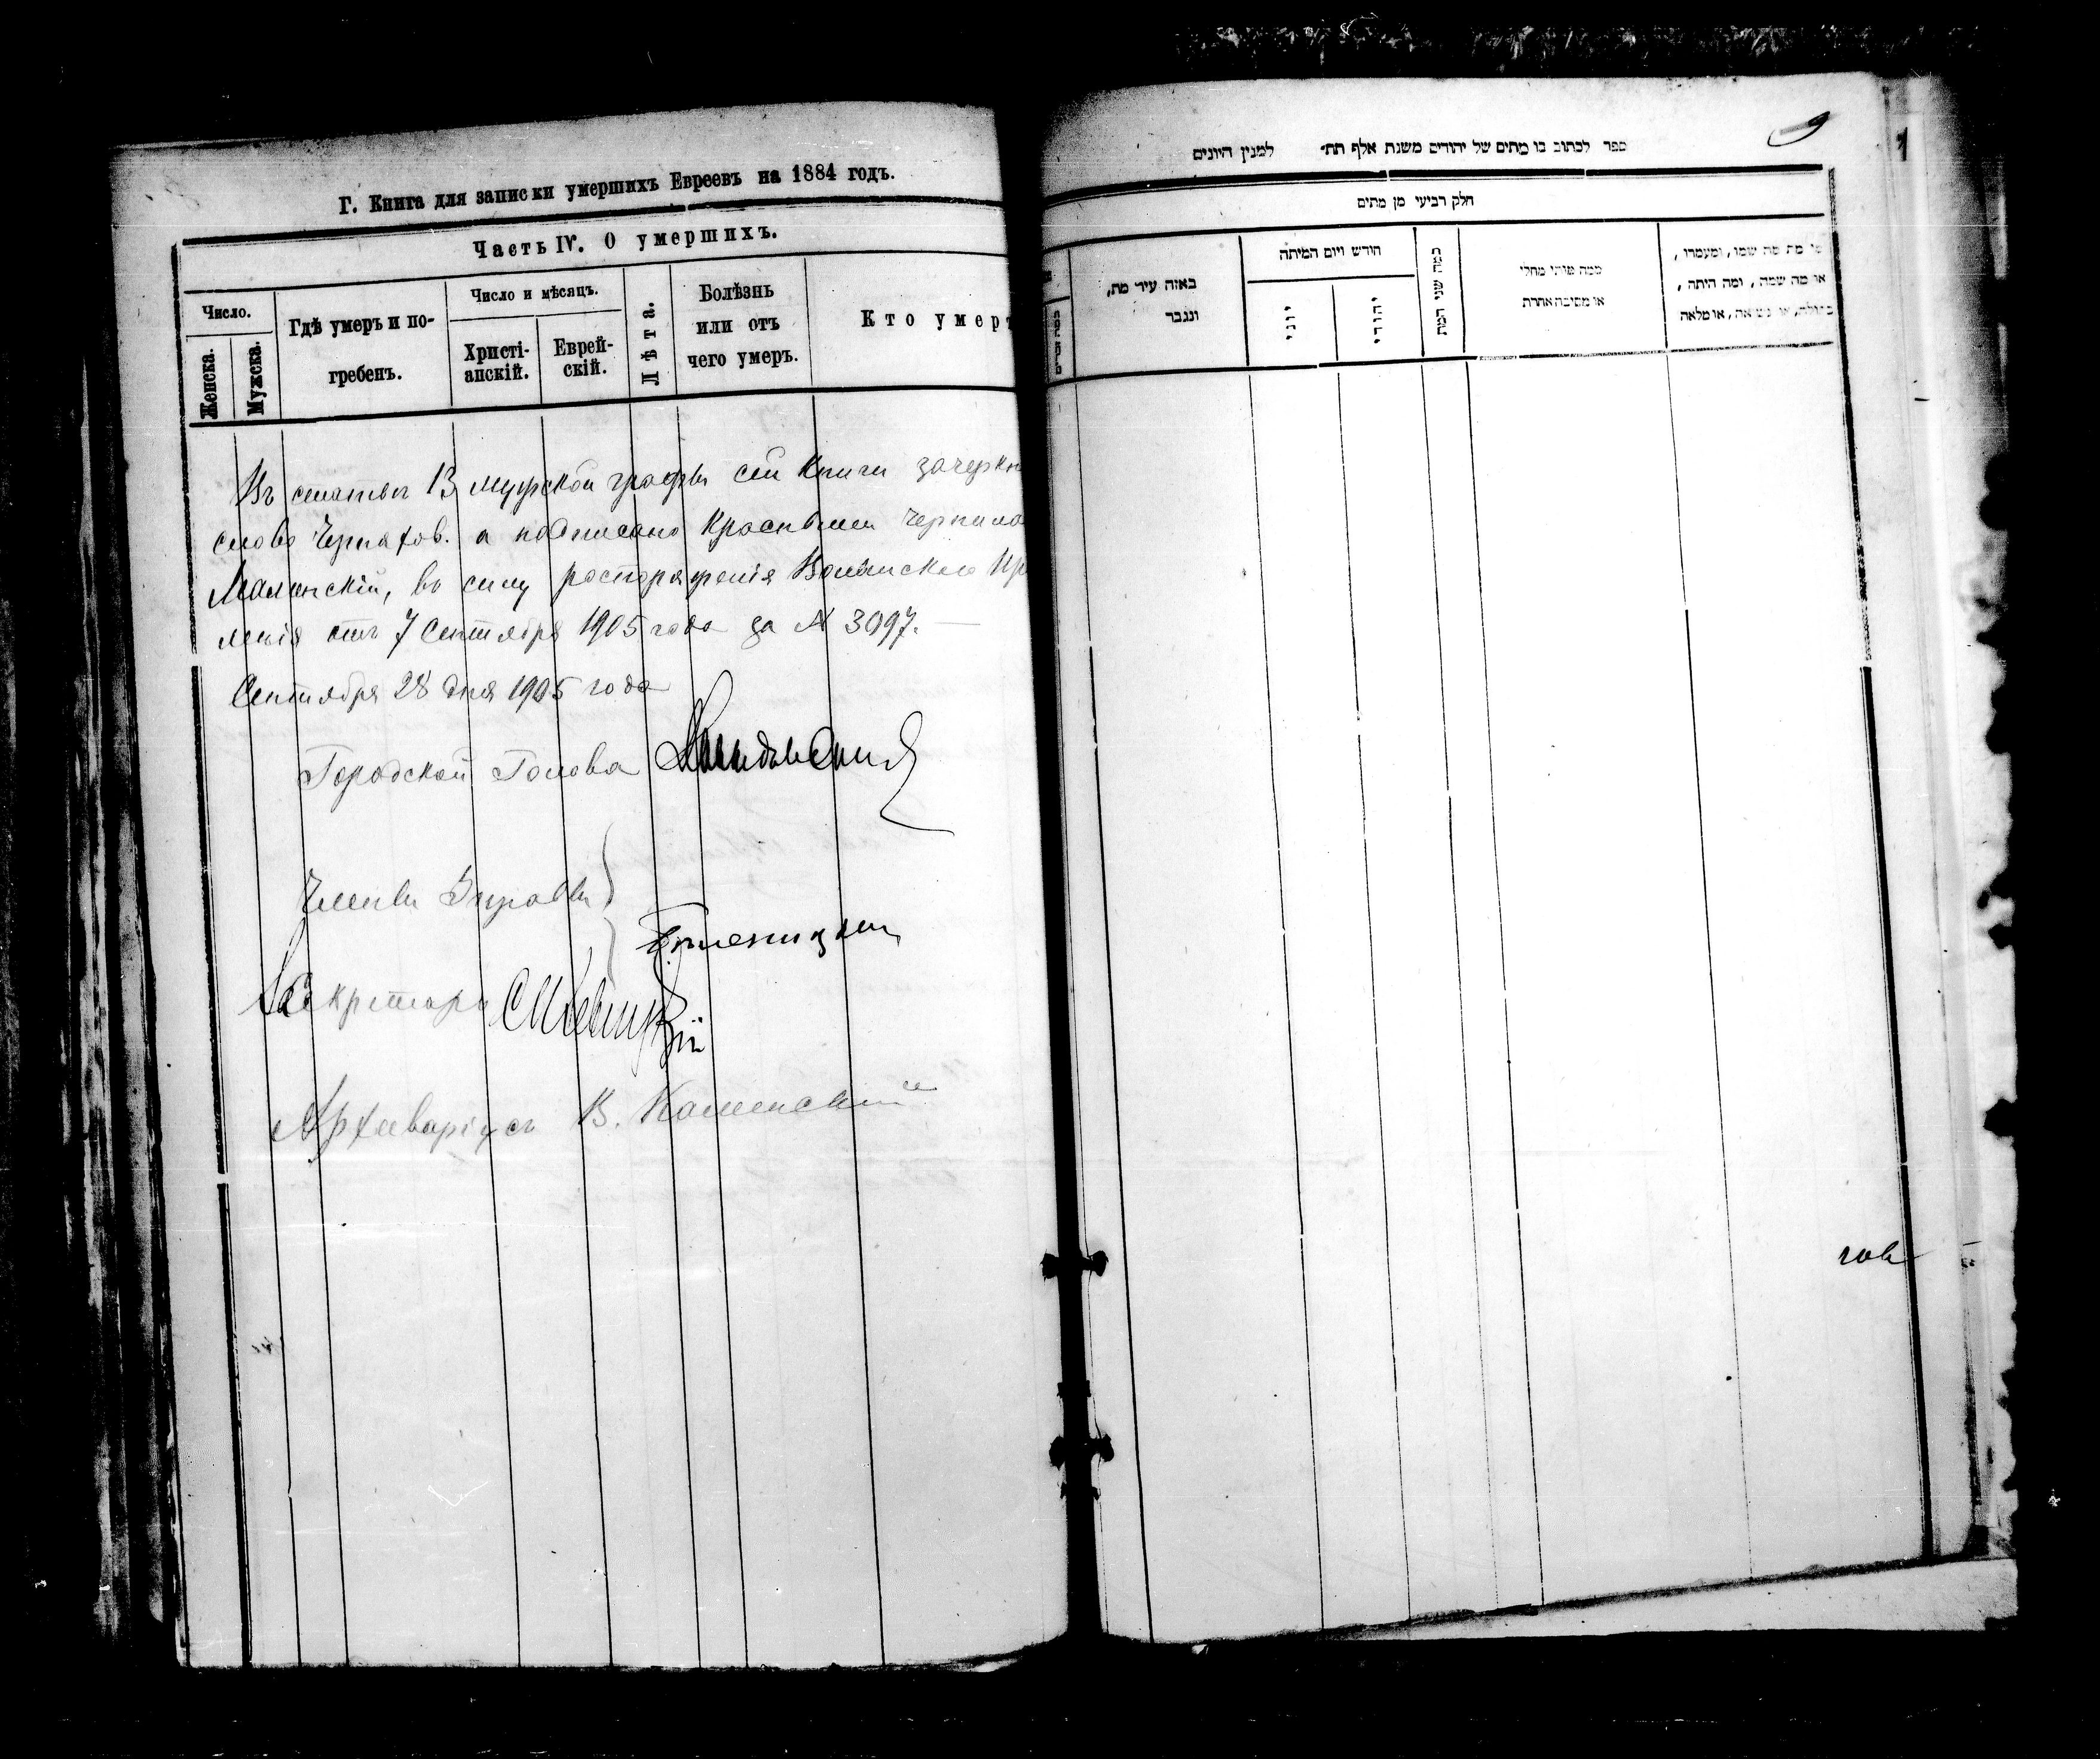 Г. Книга для записки умершихъ Евреевъ на 1884 годъ.
Часть IV. О умершихъ.
Число.
Женска.
Мужска.
Гдѣ умеръ и по-
гребенъ.
Число и мѣсяцъ.
Христі-
анскій.
Еврей-
скій.
Лѣта.
Болѣзнь
или отъ
чего умеръ.
Кто умер
Въ статьѣ 13 мужской графы сей книги зачеркн
слово Черняхов. а надписано красными чернила
Малинскій, въ силу распоряженія Волынскаго Пр
ленія отъ 7 Сентября 1905 года за № 3097.
Сентября 28 дня 1905 года
Городской Голова
Члены Управы
Секретарь
Архиваріусъ В. Каменскій
9
ספר לכתוב בו מתים של יהודים משנת אלף תת״ למנין היונים
חלק רביעי מן מתים
באזה עיר מת,
ונגבר
חודש ויום המיתה
יוני
יהודי
כמה שני המת
או מסיבה אחרת
או מה שמה, ומה היתה,